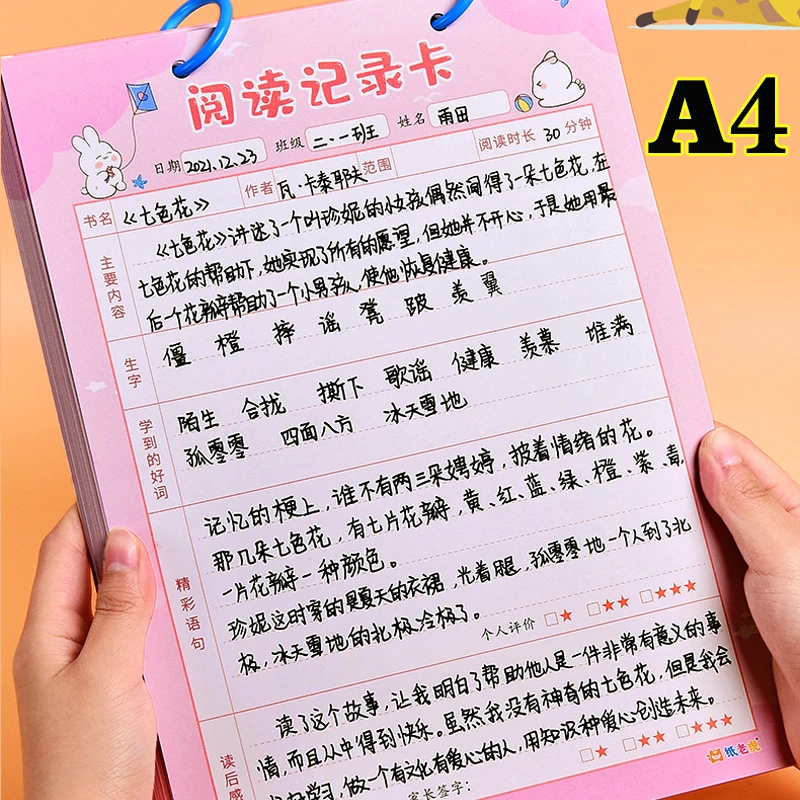 A4
阅读记录卡
日期 2021.12.23 班级 二、一班 姓名 雨田
书名 《七色花》 作者 瓦·卡泰耶夫 范围 阅读时长 30 分钟
主要内容
《七色花》讲述了一个叫珍妮的小女孩偶然间得了一朵七色花,在
七色花的帮助下,她实现了所有的愿望,但她并不开心,于是她用最
后一个花瓣帮助了一个小男孩,使他恢复健康。
生字
僵 橙 摔 谣 凳 跛 羡 翼
学到的好词
陌生 合找 撕下 歌谣 健康 羡慕 堆满
孤零零 四面八方 冰天雪地
精彩语句
记忆的梗上,谁不有两三朵娉婷,披着情绪的花。
那几朵七色花,有七片花瓣,黄、红、蓝、绿、橙、紫、青,
一片花瓣一种颜色。
珍妮这时穿的是夏天的衣裙,光着腿,孤零零地一个人到了北
极,冰天雪地的北极冷极了。
个人评价 □★ □★★ □★★★
读后感
读了这个故事,让我明白了帮助他人是一件非常有意义的事
情,而且从中得到快乐。虽然我没有神奇的七色花,但是我会
好好学习,做一个有文化有爱心的人,用知识种爱心创造未来。
家长签字: □★ □★★ □★★★
纸老虎